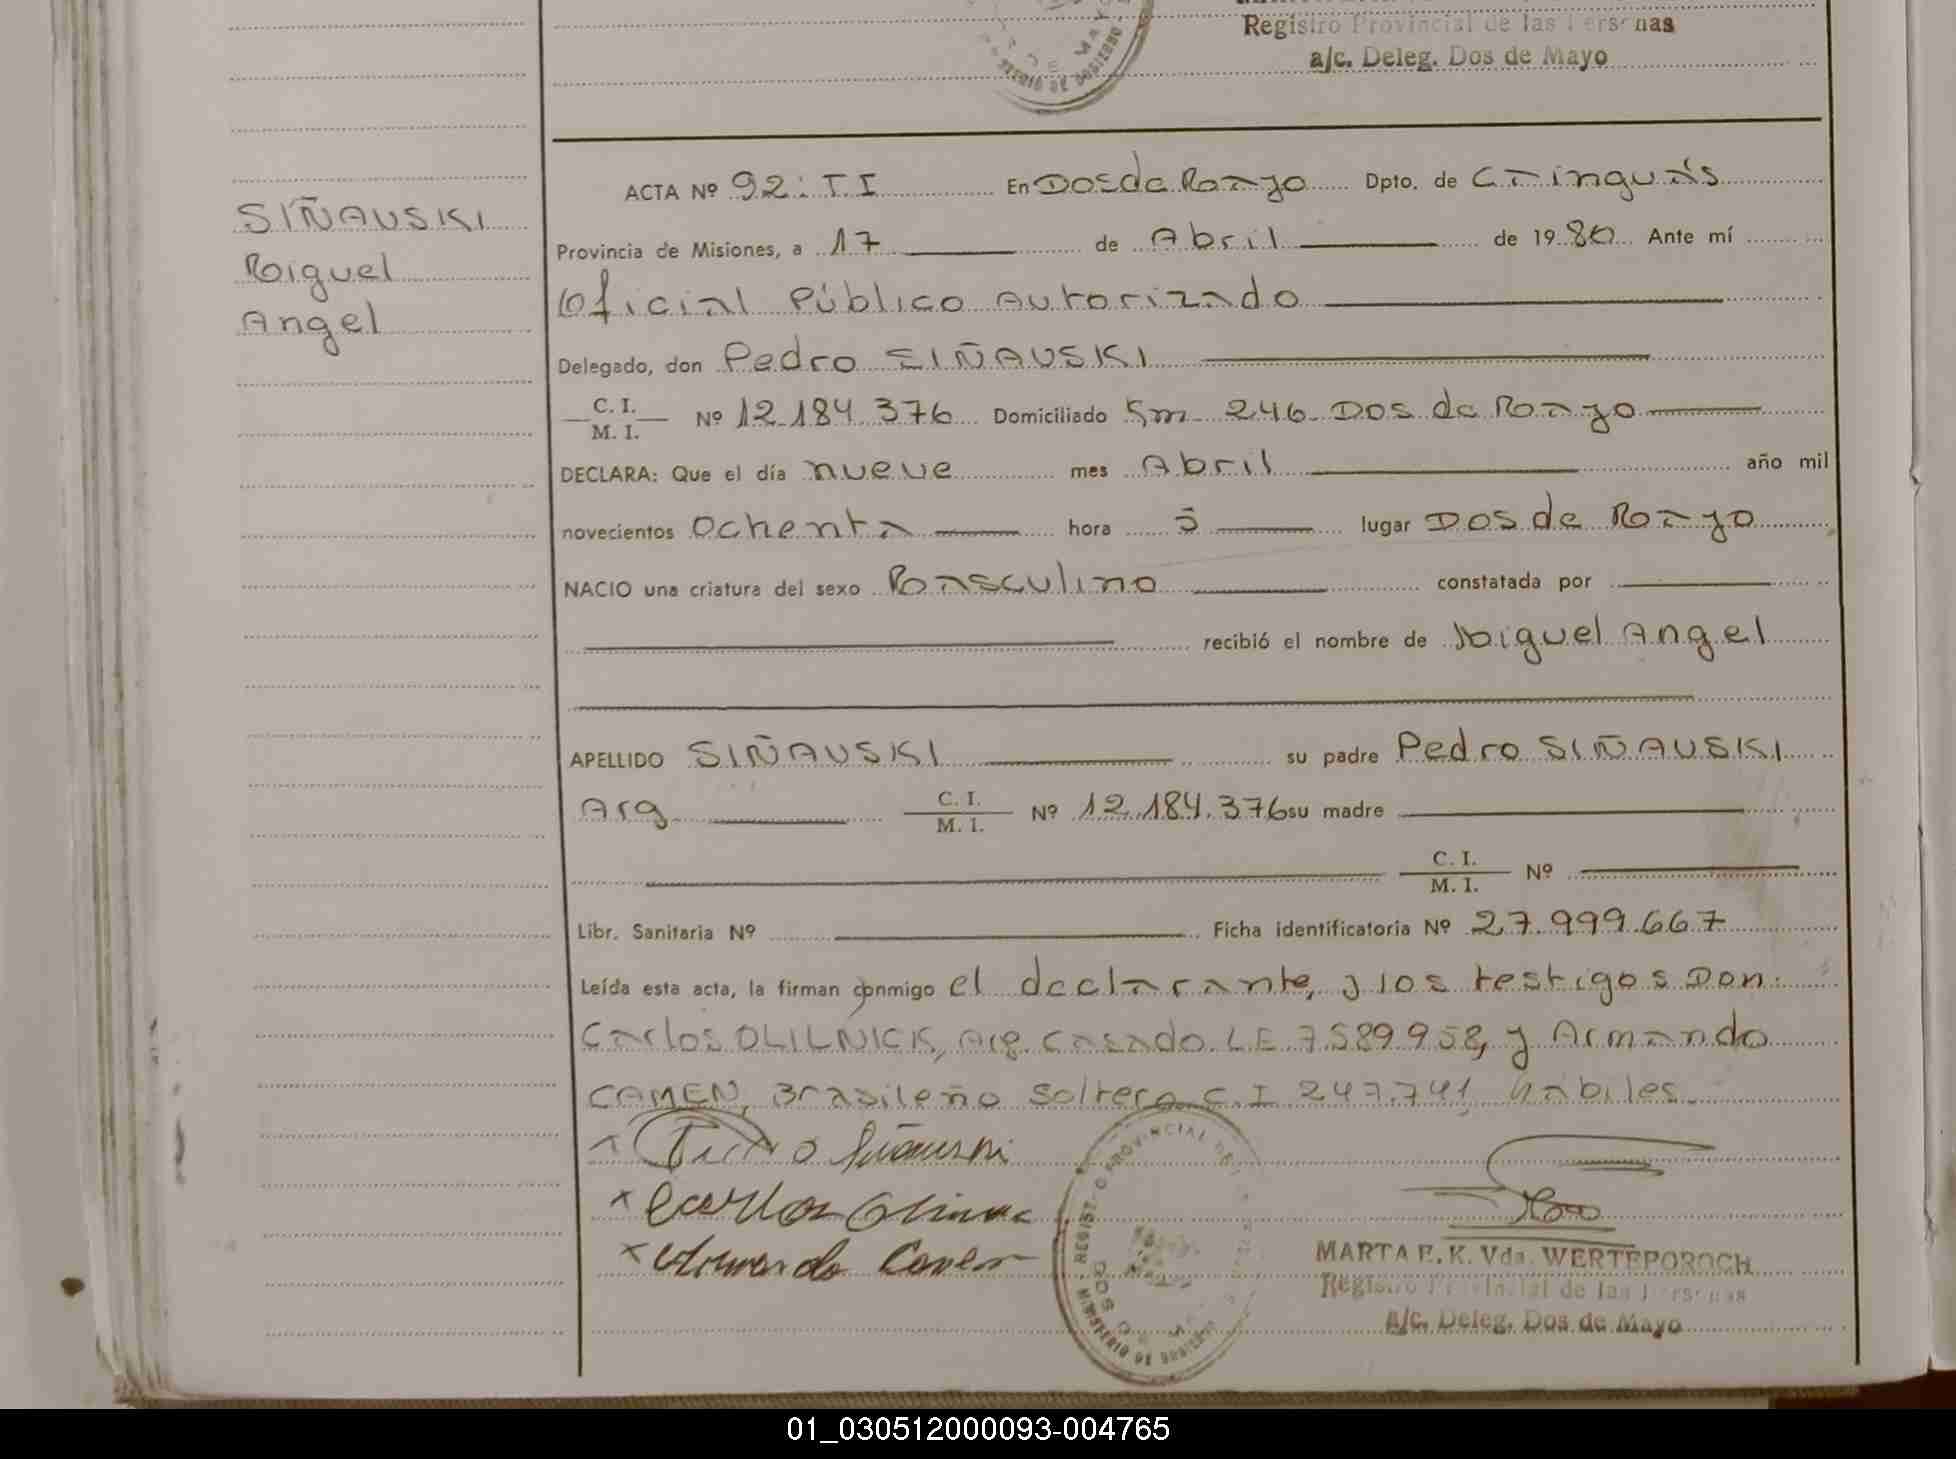 Registro Provincial de las Personas
a/c. Deleg. Dos de Mayo
SIÑAUSKI
Miguel
Angel
ACTA Nº 92: T. I En Dos de Mayo Dpto. de Cainguás
Provincia de Misiones, a 17 de Abril de 1980 Ante mí
Oficial Público Autorizado
Delegado, don Pedro SIÑAUSKI
C. I.
M. I. Nº 12.184.376 Domiciliado Km 246 Dos de Mayo
DECLARA: Que el día nueve mes Abril año mil
novecientos Ochenta hora 5 lugar Dos de Mayo
NACIO una criatura del sexo Masculino constatada por
recibió el nombre de Miguel Angel
APELLIDO SIÑAUSKI su padre Pedro SIÑAUSKI
Arg. C. I.
M. I. Nº 12.184.376 su madre
C. I.
M. I. Nº
Libr. Sanitaria Nº Ficha identificatoria Nº 27.999.667
Leída esta acta, la firman conmigo el declarante, y los testigos Don:
Carlos OLILNICK, Arg. Casado L.E 7.589.958, y Armando
CAMEN, Brasileño Soltero C.I 247.741, hábiles.
x Pedro Siñauski
x Carlos
x Armando Camen
MARTA E. K. Vda. WERTEPOROCH
Registro Provincial de las Personas
a/c. Deleg. Dos de Mayo
01_030512000093-004765